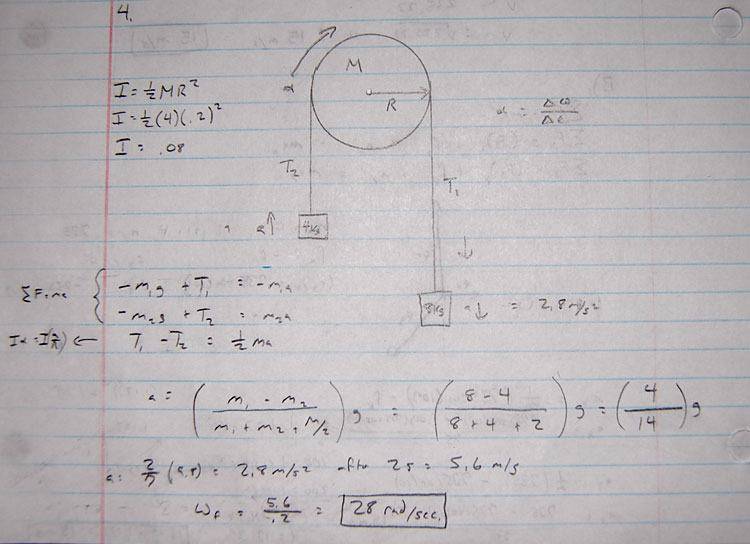 4.
M
α
R
I = ½MR²
I = ½(4)(.2)²
I = .08
α = Δω/Δt
T₂
T₁
4kg
a↑
8kg
a↓ = 2.8 m/s²
ΣF=ma { -m₁g + T₁ = -m₁a
-m₂g + T₂ = m₂a
Iα = I(a/R) ← T₁ - T₂ = ½ma
a = (m₁ - m₂ / m₁ + m₂ + M/2) g = (8 - 4 / 8 + 4 + 2) g = (4/14) g
a = 2/7 (9.8) = 2.8 m/s² after 2s = 5.6 m/s
ω_f = 5.6/.2 = 28 rad/sec.